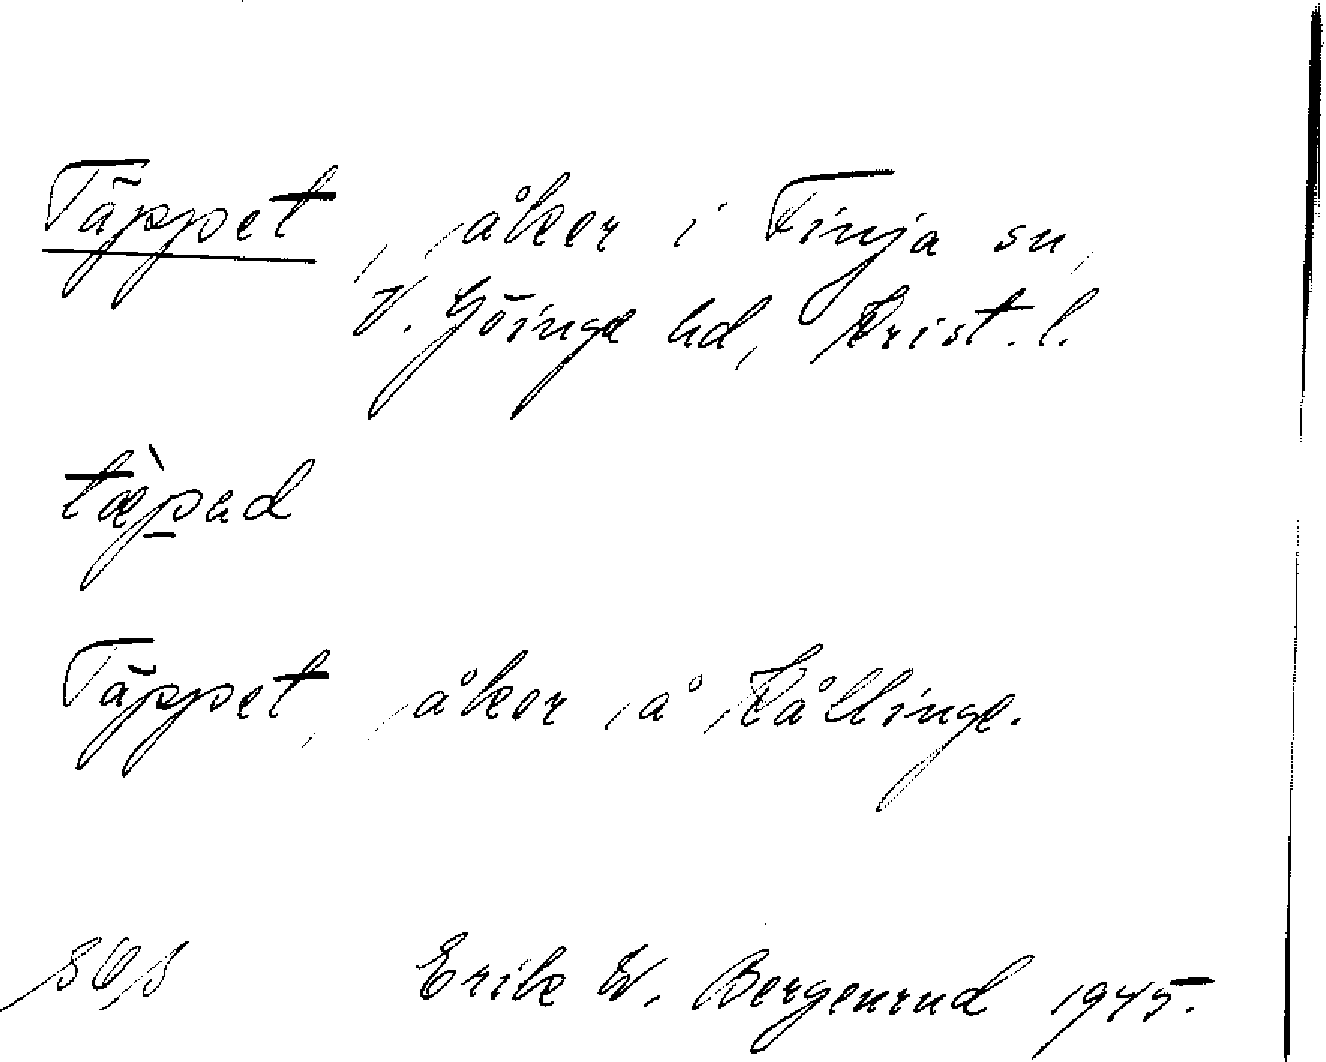 Täppet, åker i Finja sn,
V. Göinge hd, Krist. l.
tæ̀pad
Täppet, åker å Kållinge.
Erik W. Bergenrud 1945.